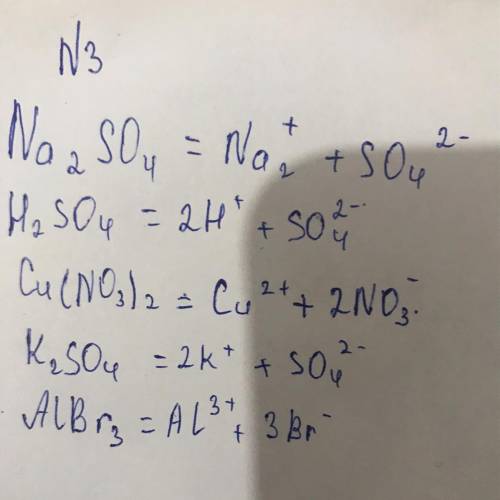 N3
Na₂SO₄ = Na₂⁺ + SO₄²⁻
H₂SO₄ = 2H⁺ + SO₄²⁻
Cu(NO₃)₂ = Cu²⁺ + 2NO₃⁻
K₂SO₄ = 2K⁺ + SO₄²⁻
AlBr₃ = Al³⁺ + 3Br⁻